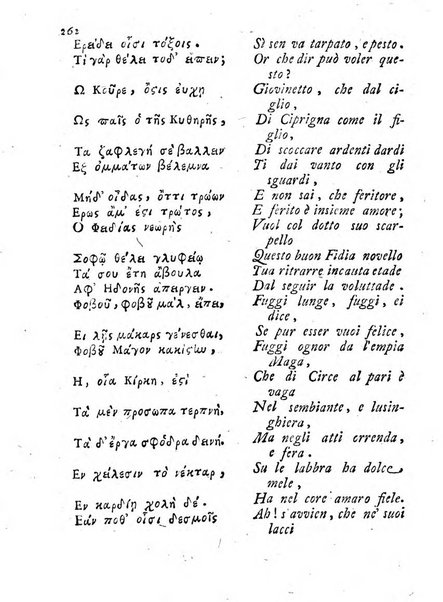 262
Ερᾶδα οἷσι τόξοις.
Τί γὰρ θέλει τοδ' ἅπαν;
Ω Κοῦρε, ὅςις εὐχῇ
Ως παῖς ὁ τῆς Κυθήρης,
Τα ζαφλεγῆ σὲ βάλλαν
Εξ ὀμμάτων βέλεμνα
Μηδ' οἶδας, ὅττι τρώων
Ερως ἅμ' ἐςὶ τρῶτος,
Ο Φαδίας νεωρὴς
Σοφῷ θέλει γλυφείῳ
Τά σου ἔτη ἄβουλα
Αφ' Ηδονῆς ἀπάργαν.
Φοβοῦ, φοβοῦ μάλ', εἶπε,
Ει λῇς μάκαρς γένεσθαι,
Φοβοῦ Μάγον κακίςω,
Η, οἵα Κίρκη, ἐςὶ
Τὰ μὲν πρόσωπα τερπνὴ,
Τὰ δ' ἔργα σφόδρα δεινή.
Εν χείλεσιν τὸ νέκταρ,
Εν καρδίῃ χολὴ δέ.
Εάν ποθ' οἷσι δεσμοῖς
Sì sen va tarpato, e pesto.
Or che dir può voler que-
sto?
Giovinetto, che dal ci-
glio,
Di Ciprigna come il fi-
glio,
Di scoccare ardenti dardi
Ti dai vanto con gli
sguardi,
E non sai, che feritore,
E ferito è insieme amore;
Vuol col dotto suo scar-
pello
Questo buon Fidia novello
Tua ritrarre incauta etade
Dal seguir la voluttade.
Fuggi lunge, fuggi, ei
dice,
Se pur esser vuoi felice,
Fuggi ognor da l'empia
Maga,
Che di Circe al pari è
vaga
Nel sembiante, e lusin-
ghiera,
Ma negli atti orrenda,
e fera.
Su le labbra ha dolce
mele,
Ha nel core amaro fiele.
Ah! s'avvien, che ne' suoi
lacci